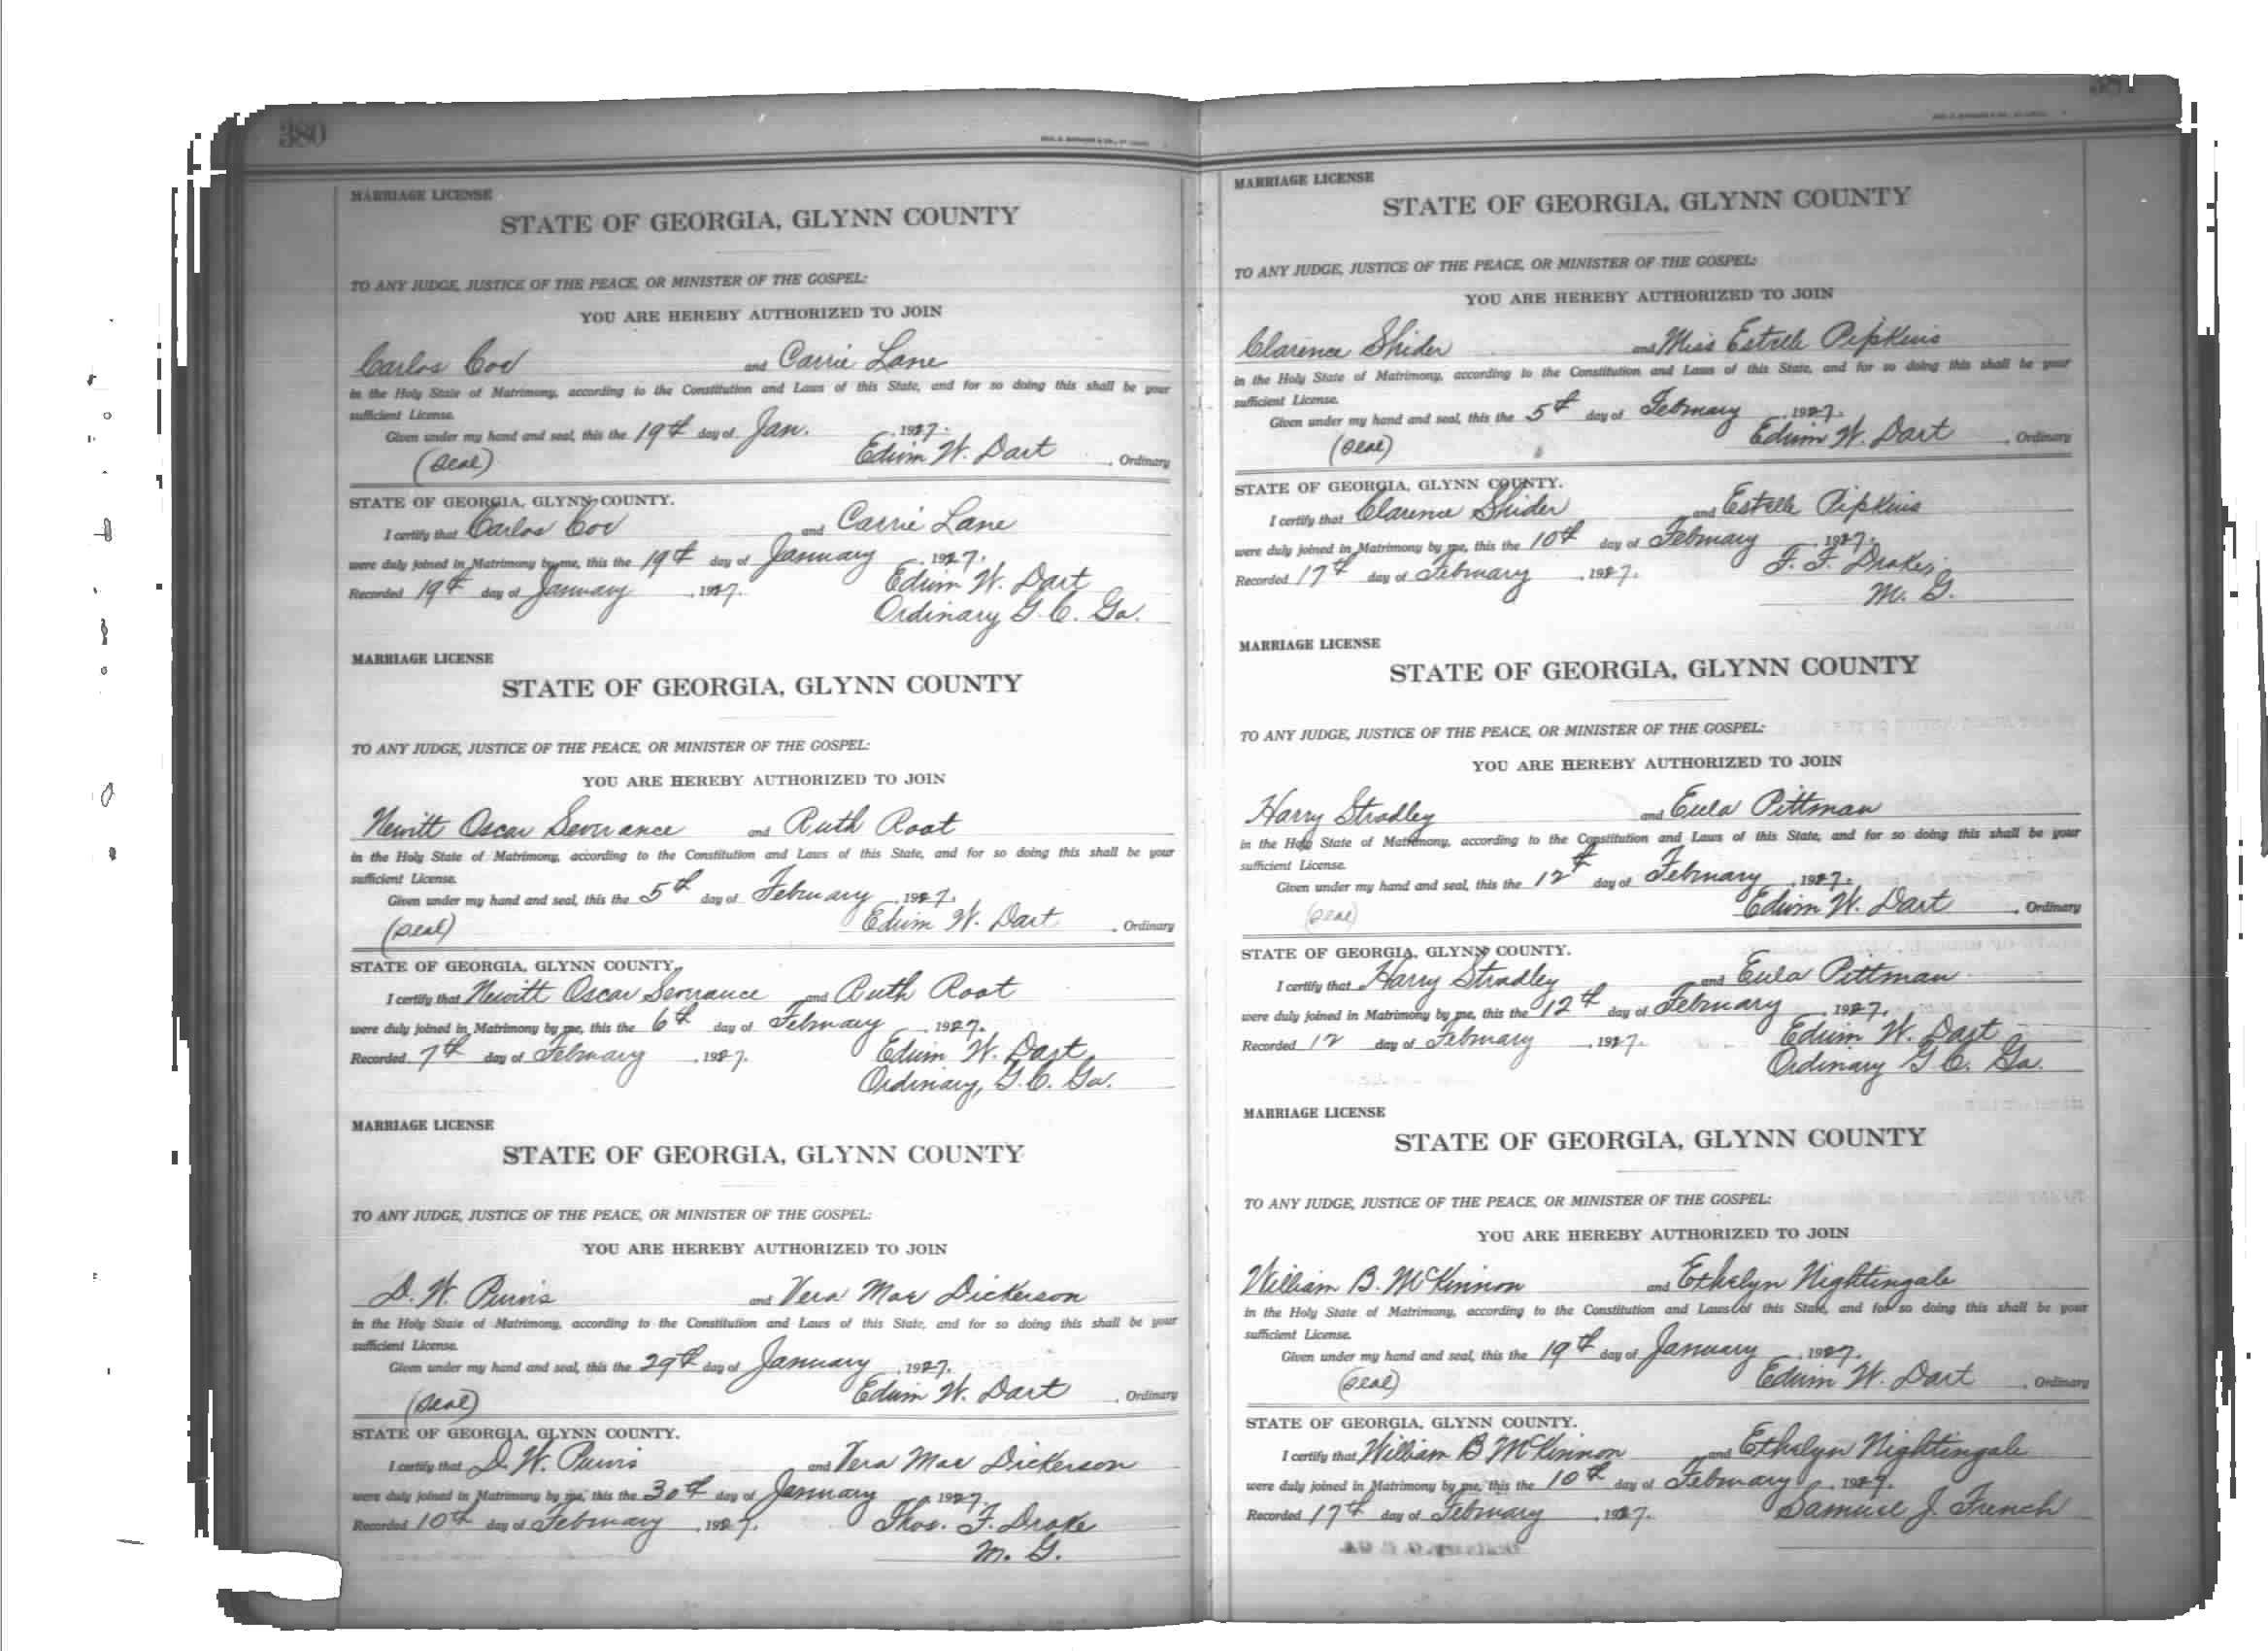 380
MARRIAGE LICENSE
STATE OF GEORGIA, GLYNN COUNTY
TO ANY JUDGE, JUSTICE OF THE PEACE, OR MINISTER OF THE GOSPEL:
YOU ARE HEREBY AUTHORIZED TO JOIN
Carlos Coe and Carrie Lane
in the Holy State of Matrimony, according to the Constitution and Laws of this State, and for so doing this shall be your
sufficient License.
Given under my hand and seal, this the 19th day of Jan. 1927.
(Seal) Edwin W. Dart, Ordinary
STATE OF GEORGIA, GLYNN COUNTY.
I certify that Carlos Coe and Carrie Lane
were duly joined in Matrimony by me, this the 19th day of January, 1927.
Recorded 19th day of January, 1927. Edwin W. Dart
Ordinary G. C. Ga.
MARRIAGE LICENSE
STATE OF GEORGIA, GLYNN COUNTY
TO ANY JUDGE, JUSTICE OF THE PEACE, OR MINISTER OF THE GOSPEL:
YOU ARE HEREBY AUTHORIZED TO JOIN
Newitt Oscar Severance and Ruth Root
in the Holy State of Matrimony, according to the Constitution and Laws of this State, and for so doing this shall be your
sufficient License.
Given under my hand and seal, this the 5th day of February, 1927.
(Seal) Edwin W. Dart, Ordinary
STATE OF GEORGIA, GLYNN COUNTY.
I certify that Newitt Oscar Severance and Ruth Root
were duly joined in Matrimony by me, this the 6th day of February, 1927.
Recorded 7th day of February, 1927. Edwin W. Dart
Ordinary, G. C. Ga.
MARRIAGE LICENSE
STATE OF GEORGIA, GLYNN COUNTY
TO ANY JUDGE, JUSTICE OF THE PEACE, OR MINISTER OF THE GOSPEL:
YOU ARE HEREBY AUTHORIZED TO JOIN
D. W. Purvis and Vera Mae Dickerson
in the Holy State of Matrimony, according to the Constitution and Laws of this State, and for so doing this shall be your
sufficient License.
Given under my hand and seal, this the 29th day of January, 1927.
(Seal) Edwin W. Dart, Ordinary
STATE OF GEORGIA, GLYNN COUNTY.
I certify that D. W. Purvis and Vera Mae Dickerson
were duly joined in Matrimony by me, this the 30th day of January, 1927.
Recorded 10th day of February, 1927. Thos. F. Drake
M. G.
MARRIAGE LICENSE
STATE OF GEORGIA, GLYNN COUNTY
TO ANY JUDGE, JUSTICE OF THE PEACE, OR MINISTER OF THE GOSPEL:
YOU ARE HEREBY AUTHORIZED TO JOIN
Clarence Shider and Miss Estelle Pipkins
in the Holy State of Matrimony, according to the Constitution and Laws of this State, and for so doing this shall be your
sufficient License.
Given under my hand and seal, this the 5th day of February, 1927.
(Seal) Edwin W. Dart, Ordinary
STATE OF GEORGIA, GLYNN COUNTY.
I certify that Clarence Shider and Estelle Pipkins
were duly joined in Matrimony by me, this the 10th day of February, 1927.
Recorded 17th day of February, 1927. F. F. Drakes
M. G.
MARRIAGE LICENSE
STATE OF GEORGIA, GLYNN COUNTY
TO ANY JUDGE, JUSTICE OF THE PEACE, OR MINISTER OF THE GOSPEL:
YOU ARE HEREBY AUTHORIZED TO JOIN
Harry Stradley and Eula Pittman
in the Holy State of Matrimony, according to the Constitution and Laws of this State, and for so doing this shall be your
sufficient License.
Given under my hand and seal, this the 12th day of February, 1927.
(Seal) Edwin W. Dart, Ordinary
STATE OF GEORGIA, GLYNN COUNTY.
I certify that Harry Stradley and Eula Pittman
were duly joined in Matrimony by me, this the 12th day of February, 1927.
Recorded 12 day of February, 1927. Edwin W. Dart
Ordinary G. C. Ga.
MARRIAGE LICENSE
STATE OF GEORGIA, GLYNN COUNTY
TO ANY JUDGE, JUSTICE OF THE PEACE, OR MINISTER OF THE GOSPEL:
YOU ARE HEREBY AUTHORIZED TO JOIN
William B. McKinnon and Ethelyn Nightingale
in the Holy State of Matrimony, according to the Constitution and Laws of this State, and for so doing this shall be your
sufficient License.
Given under my hand and seal, this the 19th day of January, 1927.
(Seal) Edwin W. Dart, Ordinary
STATE OF GEORGIA, GLYNN COUNTY.
I certify that William B McKinnon and Ethelyn Nightingale
were duly joined in Matrimony by me, this the 10th day of February, 1927.
Recorded 17th day of February, 1927. Samuel J. French